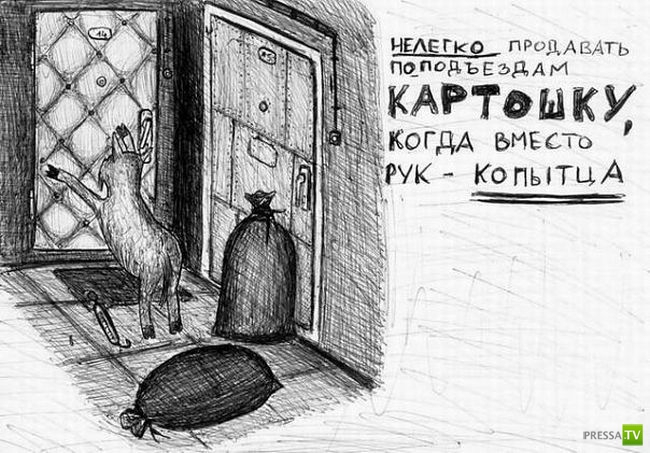 14
5
НЕЛЕГКО ПРОДАВАТЬ
ПО ПОДЪЕЗДАМ
КАРТОШКУ,
КОГДА ВМЕСТО
РУК - КОПЫТЦА
PRESSA TV